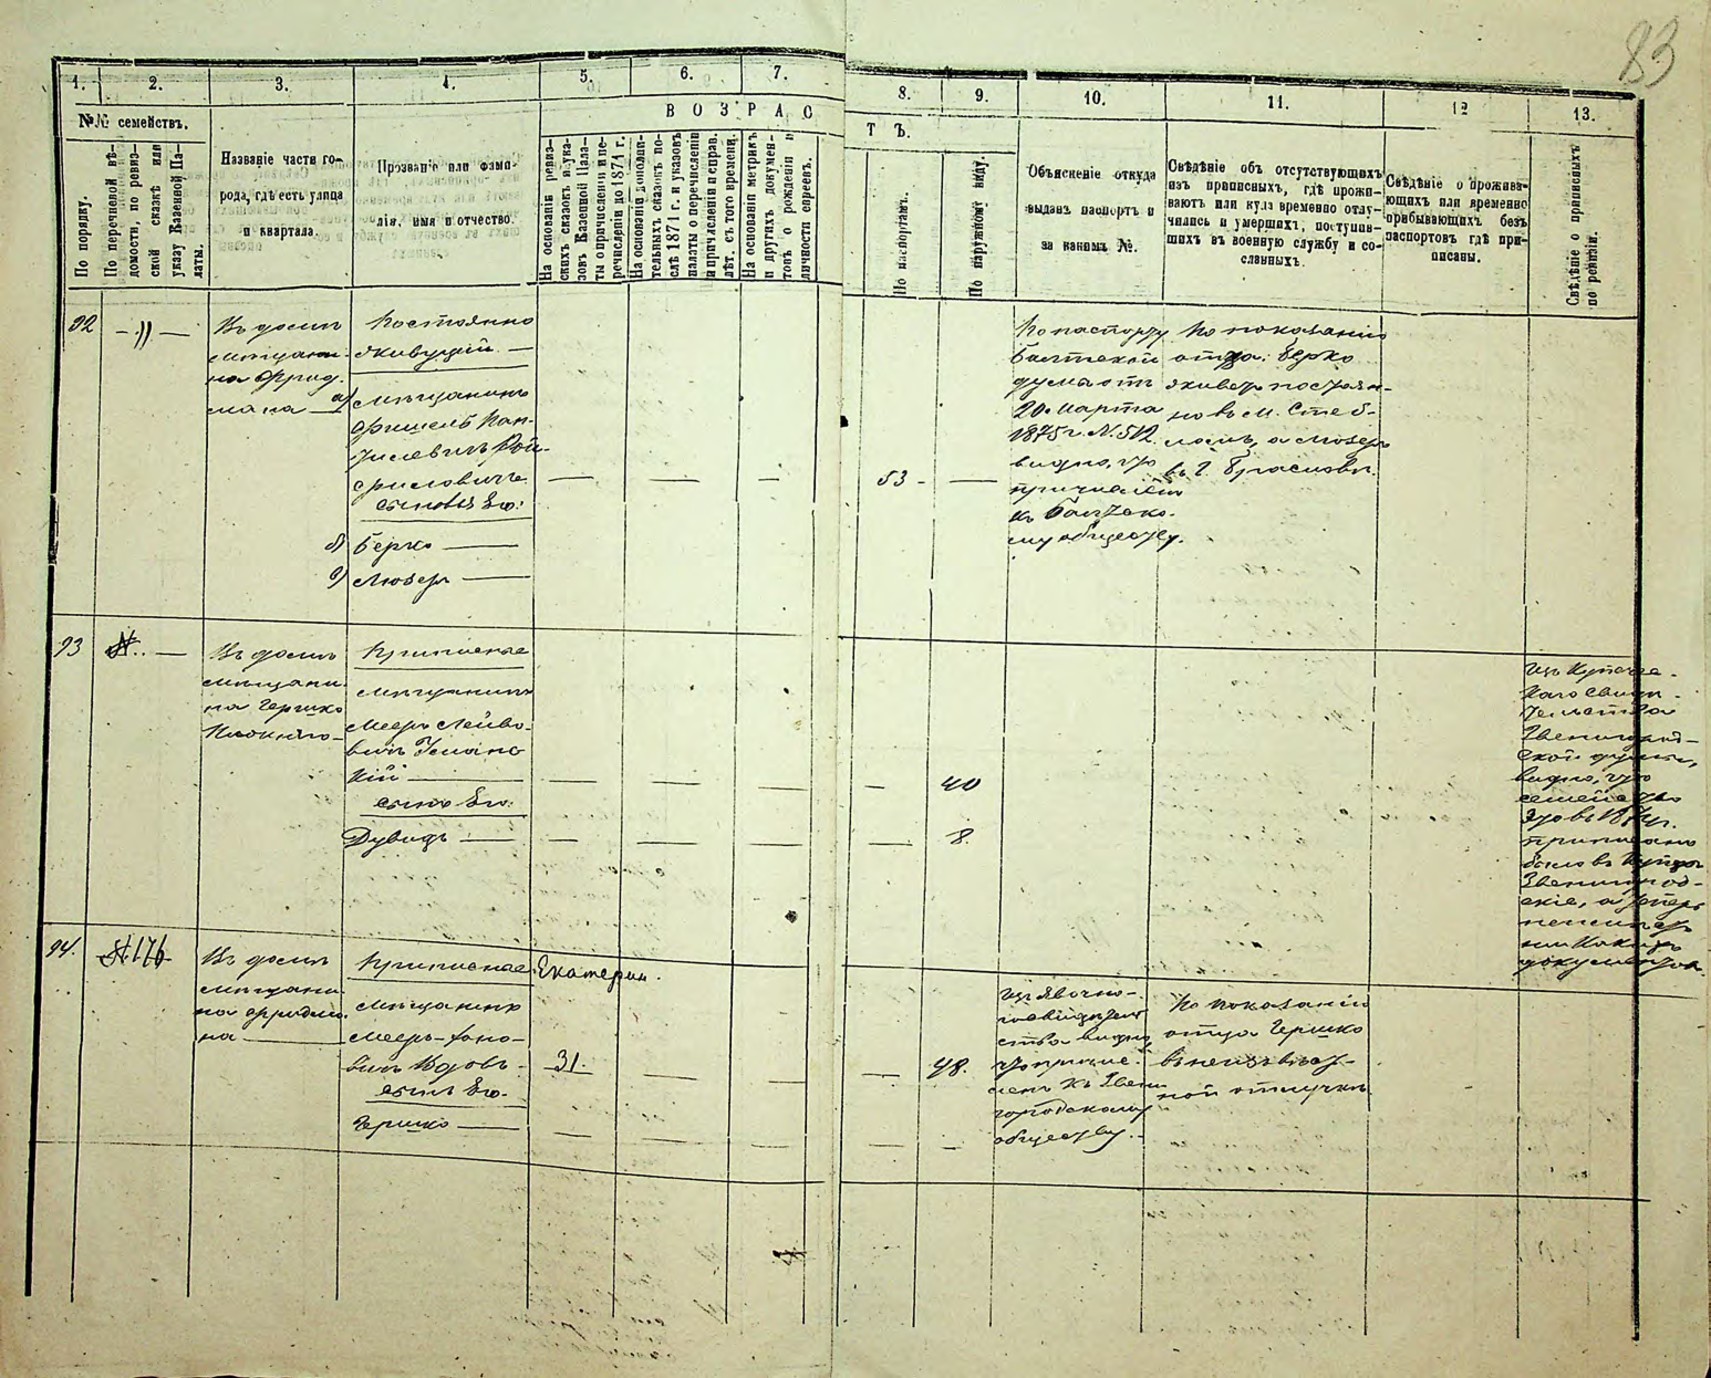 83
1.
2.
3.
4.
5.
6.
7.
8.
9.
10.
11.
12
13.
№№ семействъ.
ВОЗРАС
ТЪ.
По порядку.
По перечневой вѣ-
домости, по ревиз-
ской сказкѣ или
указу Казенной Па-
латы.
Названіе части го-
рода, гдѣ есть улица
и квартала.
Прозваніе или фами-
лія, имя и отчество.
На основаніи ревиз-
скихъ сказокъ и ука-
зовъ Казенной Пала-
ты о причисленіи и пе-
речисленіи до 1874 г.
На основаніи дополни-
тельныхъ сказокъ по-
слѣ 1871 г. и указовъ
палаты о перечисленіи
и причисленіи и справ.
лѣт. съ того времени.
На основаніи метрикъ
и другихъ докумен-
товъ о рожденіи и
личности евреевъ.
По паспортамъ.
По наружному виду.
Объясненіе откуда
выданъ паспортъ и
за какимъ №.
Свѣдѣніе объ отсутствующихъ
изъ приписныхъ, гдѣ прожи-
ваютъ или куда временно отлу-
чились и умершихъ, поступив-
шихъ въ военную службу и со-
сланныхъ.
Свѣдѣніе о прожива-
ющихъ или временно
прибывающихъ безъ
паспортовъ гдѣ при-
писаны.
Свѣдѣніе о приписныхъ
по ревизіи.
92
— " —
Въ домѣ
мѣщани-
на Фрид-
мана
Постоянно
живущій
а) мѣщанинъ
Фишель
сыновья Его:
б) Берко
в) Лейзеръ
53
По паспорту
Балтской
думы отъ
20 марта
1875 г. N. 512
видно, что
причисленъ
къ Балтско-
му обществу.
По показанію
отца: Берко
живетъ постоян-
но въ м. Стеб-
а Лейзеръ
въ г.
93
N. —
Въ домѣ
мѣщани-
на Гершко
Приписные
мѣщанинъ
Мееръ Лейбо-
вичъ Умано
кій
сынъ Его:
Дувидъ
40
8.
Изъ Купече-
каго свидѣ-
тельства
Звенигород-
ской думы,
видно, что
семейство
это въ
приписано
было въ купцы
Звенигород-
скіе, а теперь
неимѣетъ
никакихъ
документов.
94.
N. 176
Въ домѣ
мѣщани-
на Фридма-
на
Приписные Екатерин.
мѣщанинъ
Мееръ
вичъ
сынъ Его.
Гершко
31.
48.
Изъ явочна-
го свидѣтель
ства видно,
что причис-
ленъ къ Звени
городскому
обществу.
По показанію
отца Гершко
въ неизвѣст-
ной отлучкѣ.